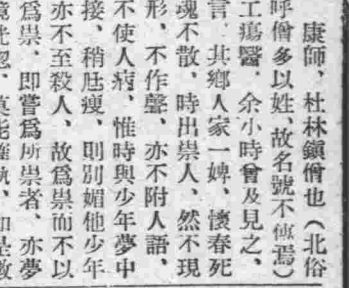 康師、杜林鎮僧也（北俗
呼僧多以姓、故名號不傳焉）
工瘍醫、余小時曾及見之、
言、其鄉人家一婢、懷春死
魂不散、時出祟人、然不現
形、不作聲、亦不附人語、
不使人病、惟時與少年夢中
接、稍尫瘦、則別媚他少年
亦不至殺人、故爲祟而不以
爲祟、即嘗爲所祟者、亦夢
境恍惚、莫能確執、如是數